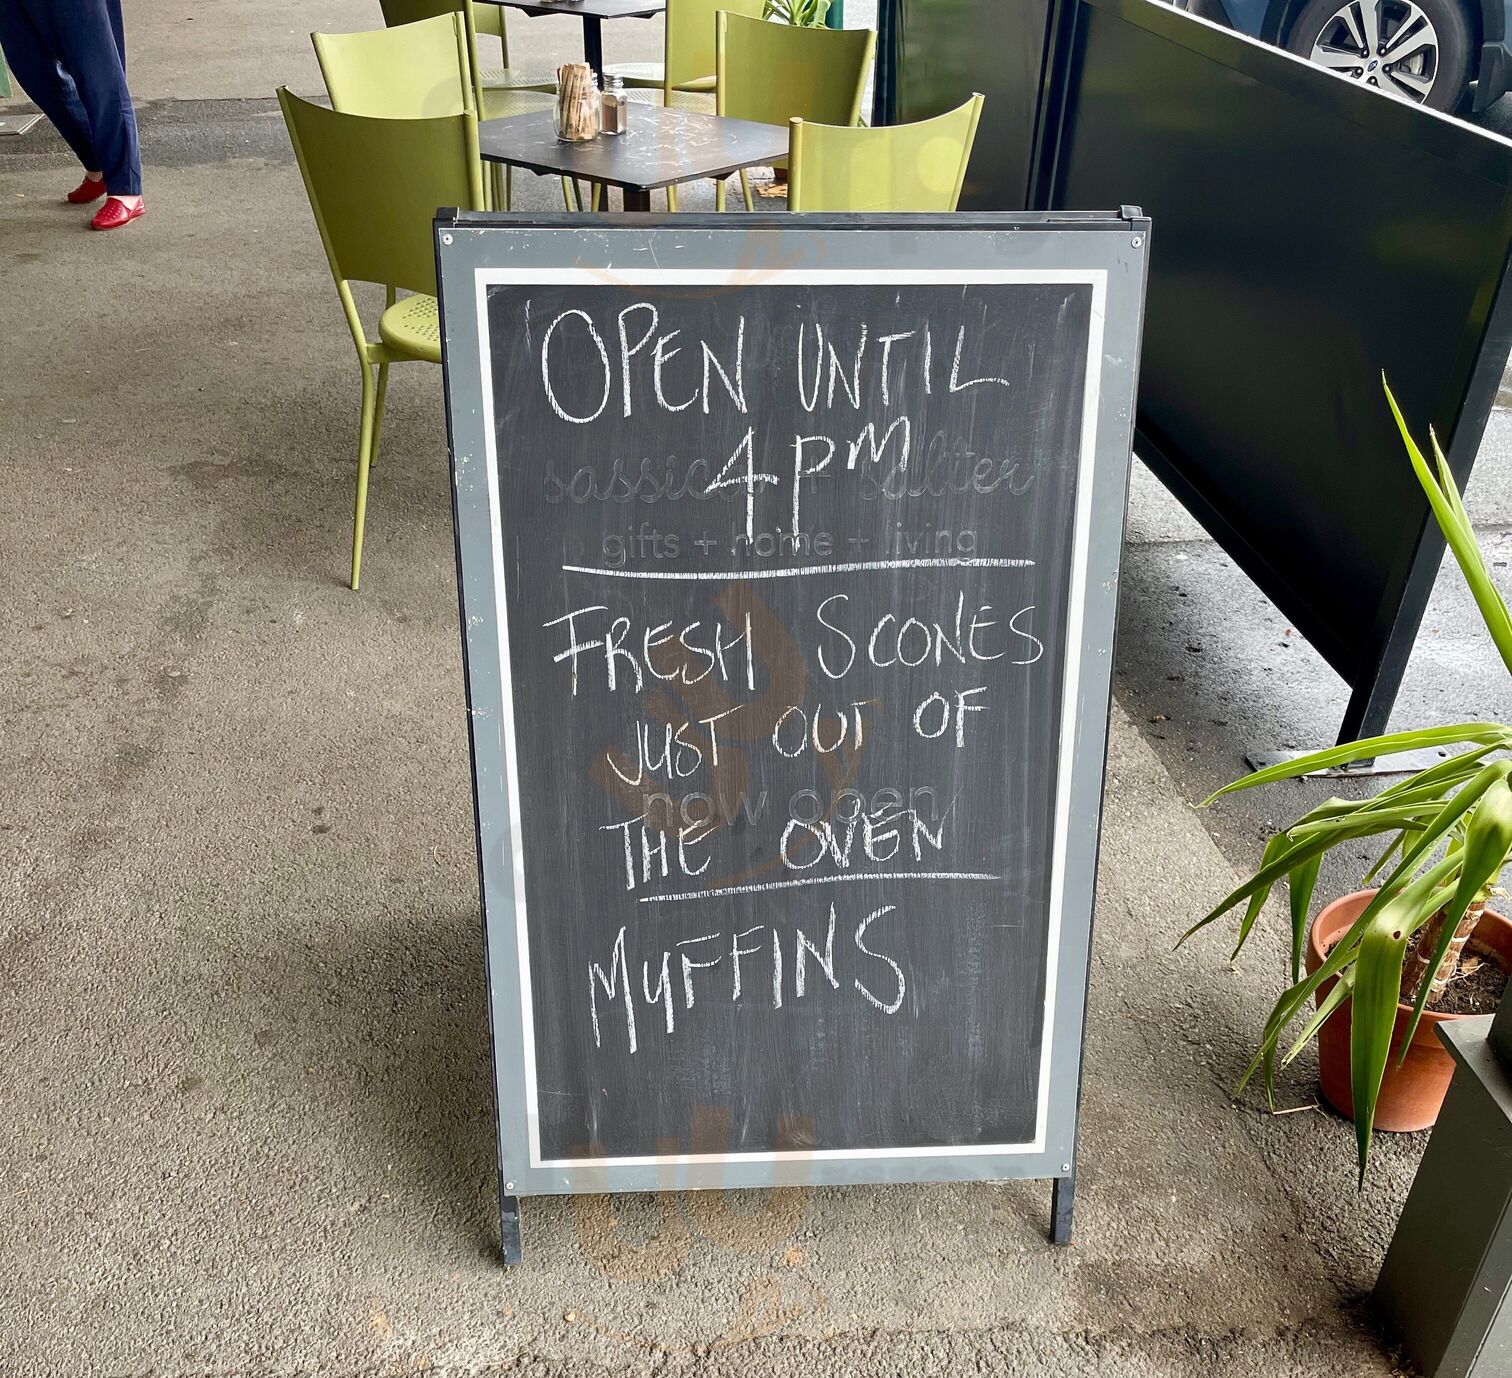 OPEN UNTIL
4PM
gifts + home + living
FRESH SCONES
JUST OUT OF
now open
THE OVEN
MUFFINS